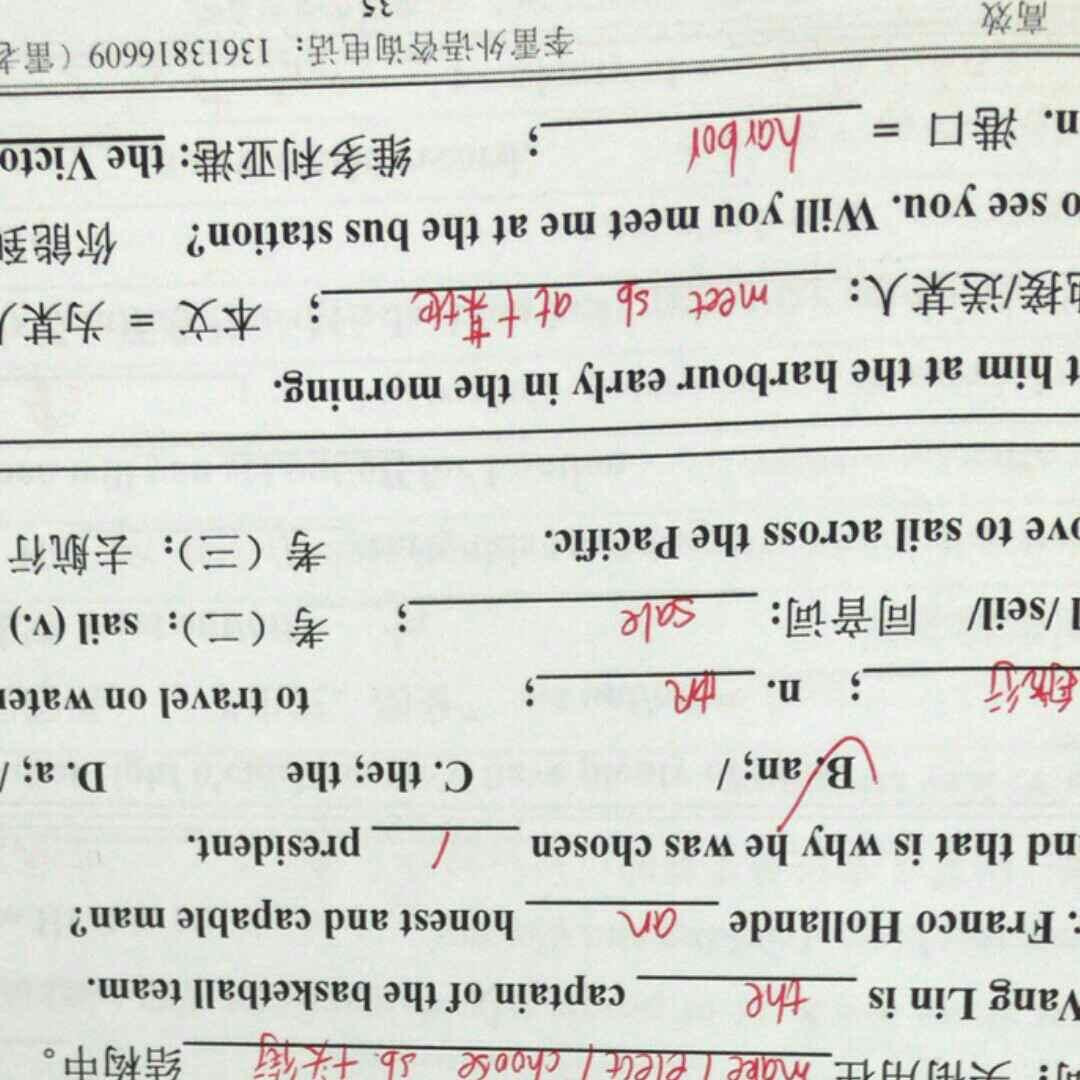 : 头衔用在 make / elect / choose sb +头衔 结构中。
Wang Lin is the captain of the basketball team.
. Franco Hollande an honest and capable man?
nd that is why he was chosen / president.
B. an; / C. the; the D. a; /
航行; n. 帆; to travel on water
l /seil/ 同音词: sale; 考（二）: sail (v.)
ove to sail across the Pacific. 考（三）: 去航行
t him at the harbour early in the morning.
地接/送某人: meet sb at+某地; 本文 = 为某人
o see you. Will you meet me at the bus station? 你能到
n. 港口 = harbor; 维多利亚港: the Victo
高效 李雷外语咨询电话: 13613816609（雷老
35